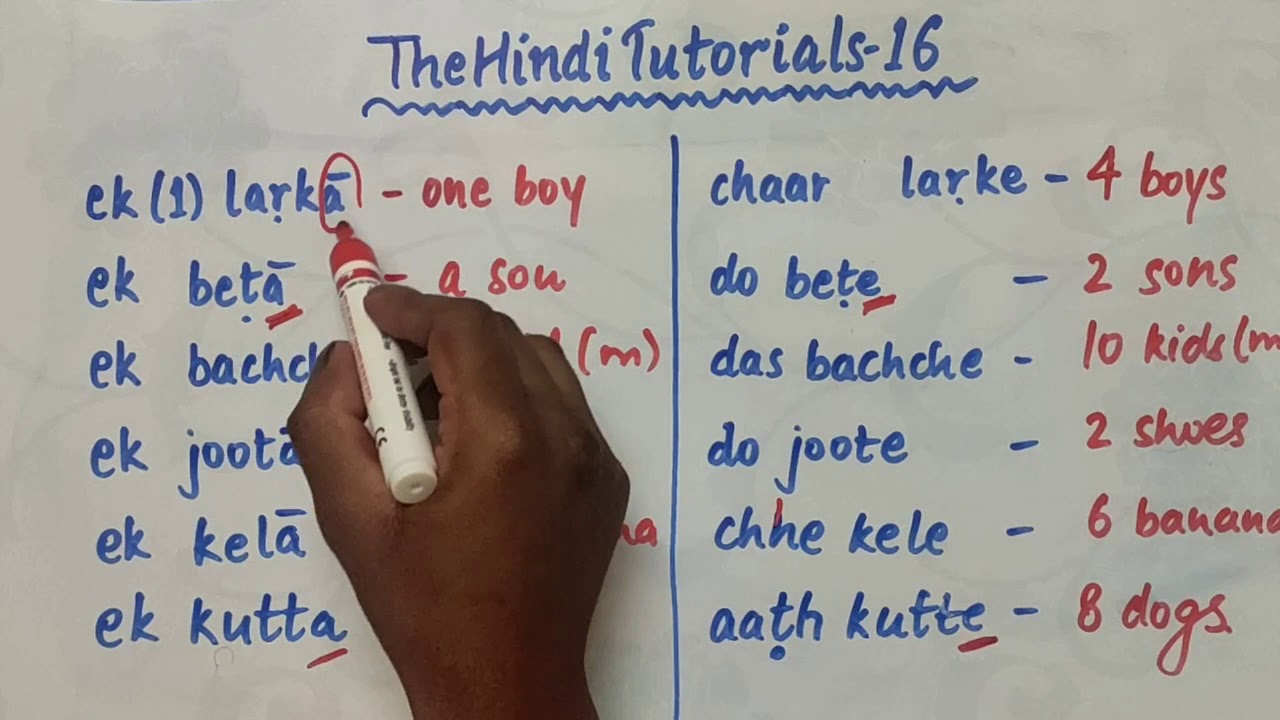 The Hindi Tutorials-16
ek (1) laṛkā - one boy
ek beṭā - a son
ek (m)
ek jootā
ek kelā
ek kutta
chaar laṛke - 4 boys
do beṭe - 2 sons
das bachche - 10 kids (m
do joote - 2 shoes
chhe kele - 6
aaṭh kutte - 8 dogs